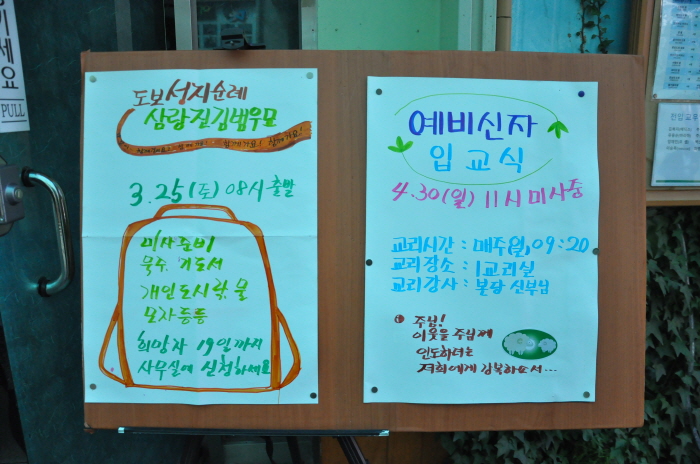 기세요
PULL
도보성지순례
삼랑진김범우묘
함께가요! 함께가요!
3.25(토) 08시 출발
미사준비
묵주, 기도서
개인도시락, 물
모자등등
희망자 19일까지
사무실에 신청하세요
예비신자
입교식
4.30(일) 11시 미사중
교리시간 : 매주(일), 09:20
교리장소 : 1교리실
교리강사 : 본당 신부님
주님!
이웃을 주님께
인도하려는
저희에게 강복하소서...